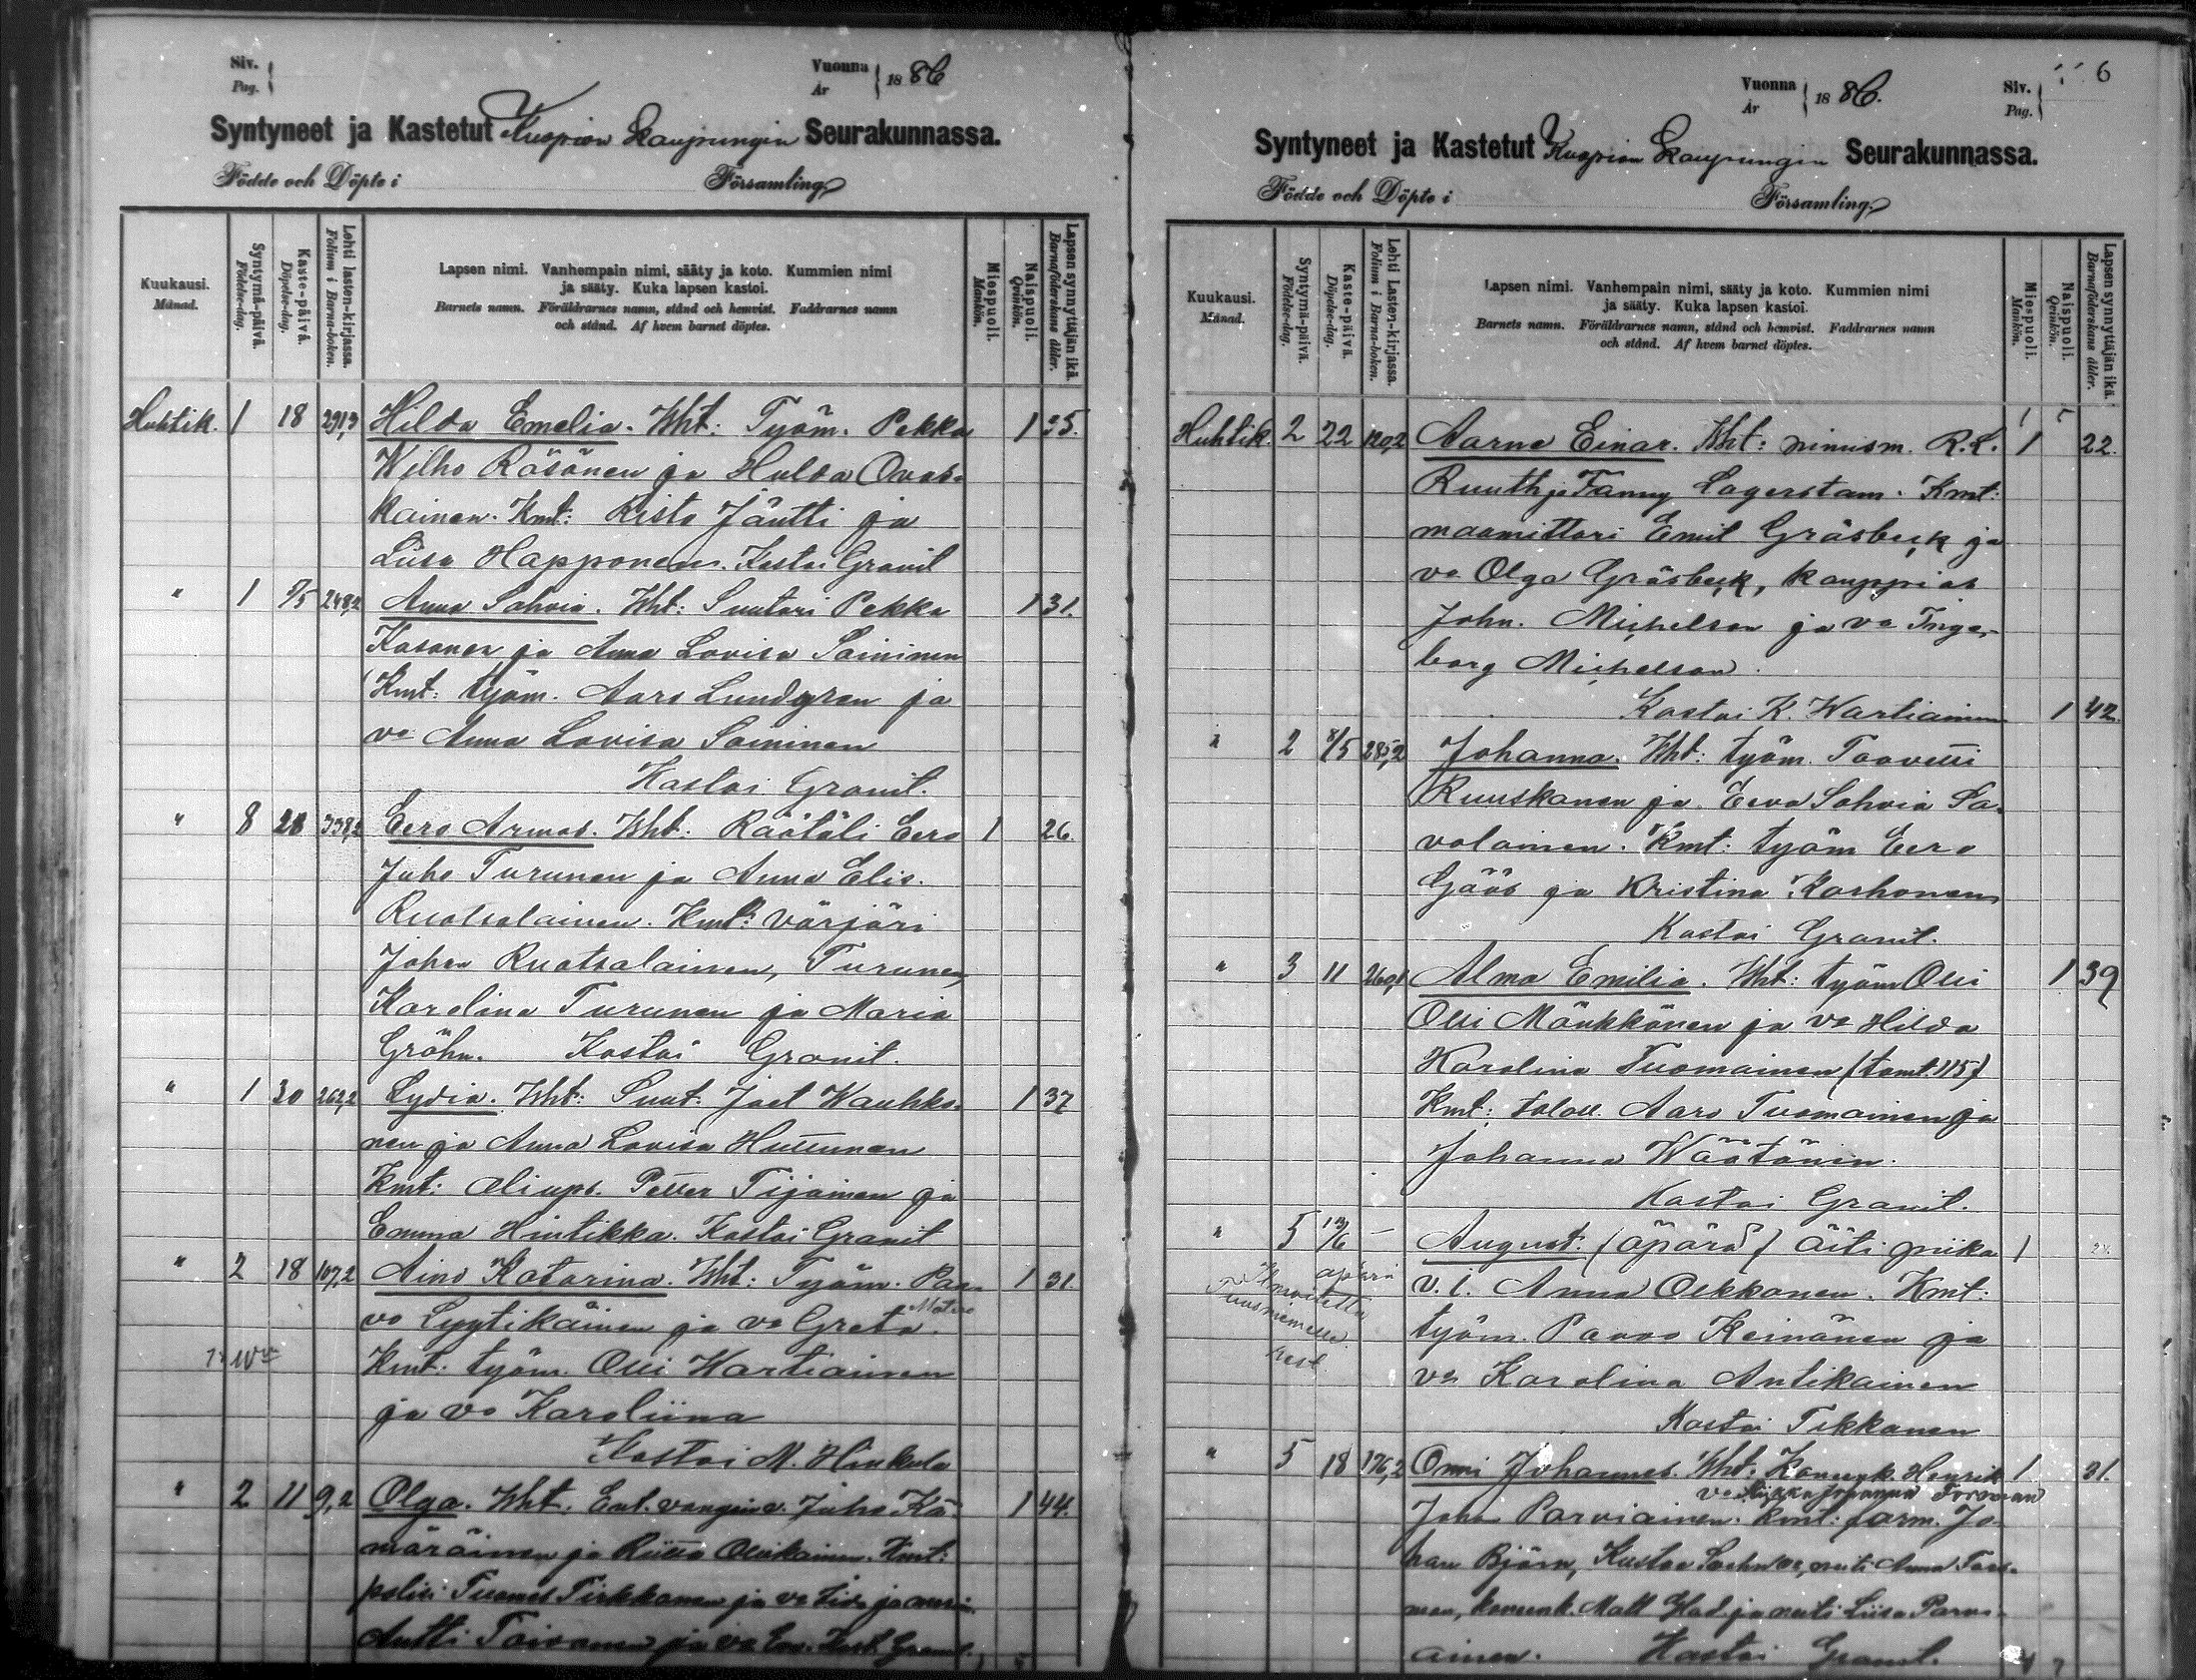 Siv.
Pag.
Vuonna
År
18 86
Syntyneet ja Kastetut Kuopion kaupungin Seurakunnassa.
Födde och Döpte i Församling
Kuukausi.
Månad.
Syntymä-päivä.
Födelse-dag.
Kaste-päivä.
Döpelse-dag.
Lehti lasten-kirjassa.
Folium i Barna-boken.
Lapsen nimi. Vanhempain nimi, sääty ja koto. Kummien nimi
ja sääty. Kuka lapsen kastoi.
Barnets namn. Föräldrarnes namn, stånd och hemvist. Faddrarnes namn
och stånd. Af hvem barnet döptes.
Miespuoli.
Mankön.
Naispuoli.
Qvinkön.
Lapsen synnyttäjän ikä.
Barnaföderskans ålder.
Huhtik. 1 18 291,3 Hilda Emelia. Wht: Työm. Pekka 1 35.
Wilho Räsänen ja Hulda Ovas-
kainen. Kmt: Risto Jäntti ja
Liisa Happonen. Kastoi Granit
" 1 2/5 248,2 Anna Sohvia. Wht: Suutari Pekka 1 31.
Kosonen ja Anna Lovisa Soininen
Kmt: työm. Aaro Lundgren ja
vo Anna Lovisa Soininen
Kastoi Granit.
" 8 28 338,2 Eero Armas. Wht: Räätäli Eero 1 26.
Juho Turunen ja Anna Elis.
Ruotsalainen. Kmt: värjäri
Johan Ruotsalainen, Turunen,
Karolina Turunen ja Maria
Gröhn. Kastoi Granit.
" 1 30 262,2 Lydia. Wht: Suut. Joel Wauhko- 1 37
nen ja Anna Lovisa Huttunen
Kmt: aliups. Petter Tijainen ja
Emma Hintikka. Kastoi Granit
" 2 18 107,2 Aino Katarina. Wht: Työm. Paa- 1 31.
vo Lyytikäinen ja vo Greta.
Kmt: työm. Olli Wartiainen
ja vo Karoliina
Kastoi M. Hinkula
" 2 11 9,2 Olga. Wht. Ent. vanginv. Juho Kä- 1 44.
märäinen ja Riitta Ollikainen. Kmt:
poliisi Tuomas Tirkkonen ja vo Fida ja
Antti Toivanen ja vo Eva. Kast. Granit.
Vuonna
År
18 86.
Siv.
Pag.
6
Syntyneet ja Kastetut Kuopion Kaupungin Seurakunnassa.
Födde och Döpte i Församling
Kuukausi.
Månad.
Syntymä-päivä.
Födelse-dag.
Kaste-päivä.
Döpelse-dag.
Lehti Lasten-kirjassa.
Folium i Barna-boken.
Lapsen nimi. Vanhempain nimi, sääty ja koto. Kummien nimi
ja sääty. Kuka lapsen kastoi.
Barnets namn. Föräldrarnes namn, stånd och hemvist. Faddrarnes namn
och stånd. Af hvem barnet döptes.
Miespuoli.
Mankön.
Naispuoli.
Qvinkön.
Lapsen synnyttäjän ikä.
Barnaföderskans ålder.
Huhtik. 2 22 120,2 Aarne Einar. Wht: nimusm. R.L. 1 22.
Ruuth ja Fanny Lagerstam. Kmt:
maamittari Emil Gräsbeck ja
vo Olga Gräsbeck, kauppias
John. Michelson ja vo Inge-
borg Michelson.
Kastoi K. Wartiainen 1 42.
" 2 8/5 285,2 Johanna. Wht: työm. Taavetti
Ruuskanen ja Eeva Sohvia Sa-
volainen. Kmt: työm Eero
Göös ja Kristina Korhonen
Kastoi Granit.
" 3 11 260,1 Alma Emilia. Wht: työm Olli 1 39
Olli Mönkkönen ja vo Hilda
Karolina Tuomainen (tomt. 115)
Kmt: taloll. Aaro Tuomainen ja
Johanna Wäätänin.
Kastoi Granit.
" 5 13/6 – August. (äpärä) äiti piika 1
v. i. Anna Okkonen. Kmt:
äpärä
Ilmoitettu
Tuusniemelle
kast.
työm. Paavo Keinänen ja
vo Karolina Antikainen
Kastoi Tikkanen
" 5 18 176,2 Onni Johannes. Wht: Konennk. Henrik 1 31.
Johan Parviainen. Kmt: farm. Jo-
han Björn, Kustaa neiti Anna Fors-
man, konennk. Matt ja neiti Liisa Parvi-
ainen. Kastoi Granit.